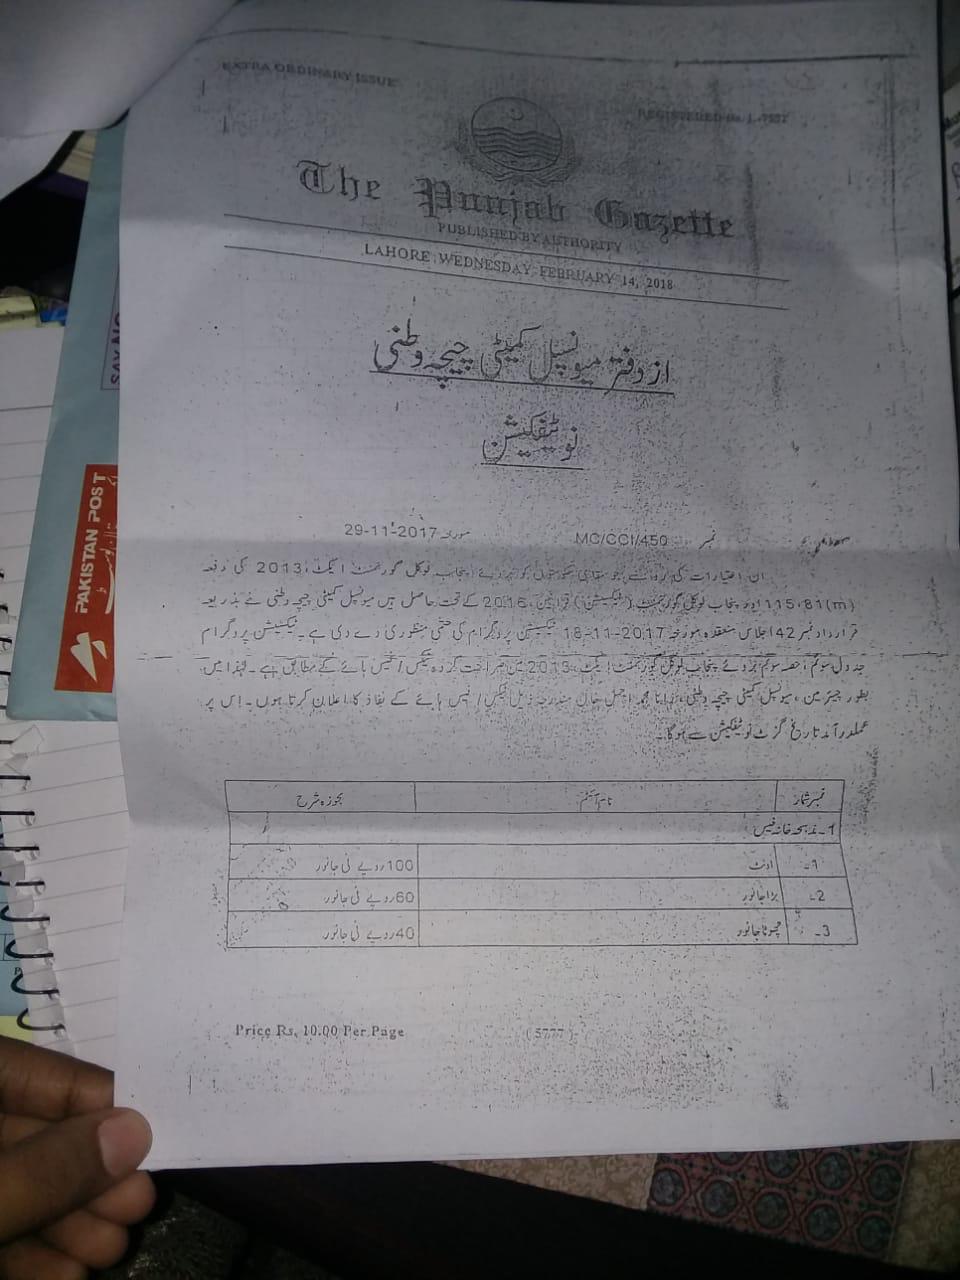 EXTRA ORDINARY ISSUE
REGISTERED No. L.-7532
The Punjab Gazette
PUBLISHED BY AUTHORITY
LAHORE WEDNESDAY FEBRUARY 14, 2018
از دفتر میونسپل کمیٹی چیچہ وطنی
نوٹیفکیشن
نمبر MC/CCI/450 مورخہ 29-11-2017
ان اختیارات کی رو سے جو مقامی حکومتوں کو بروئے پنجاب لوکل گورنمنٹ ایکٹ، 2013 کی دفعہ
115،81(m) اور پنجاب لوکل گورنمنٹ (ٹیکسیشن) قوانین، 2016 کے تحت حاصل ہیں میونسپل کمیٹی چیچہ وطنی نے بذریعہ
قرارداد نمبر 42 اجلاس منعقدہ مورخہ 18-11-2017 ٹیکسیشن پروگرام کی حتمی منظوری دے دی ہے۔ ٹیکسیشن پروگرام
جدول سوئم، حصہ سوئم بروئے پنجاب لوکل گورنمنٹ ایکٹ، 2013 میں صراحت کردہ ٹیکس/فیس ہائے کے مطابق ہے۔ لہٰذا میں
بطور چیئرمین، میونسپل کمیٹی چیچہ وطنی، رانا محمد اجمل خاں مندرجہ ذیل ٹیکس/فیس ہائے کے نفاذ کا اعلان کرتا ہوں۔ اس پر
عملدرآمد تاریخ گزٹ نوٹیفکیشن سے ہوگا۔
نمبر شمار نام آئٹم مجوزہ شرح
1۔ مذبحہ خانہ فیس
1۔ اونٹ 100 روپے فی جانور
2۔ بڑا جانور 60 روپے فی جانور
3۔ چھوٹا جانور 40 روپے فی جانور
Price Rs. 10.00 Per Page (5777)
PAKISTAN POST